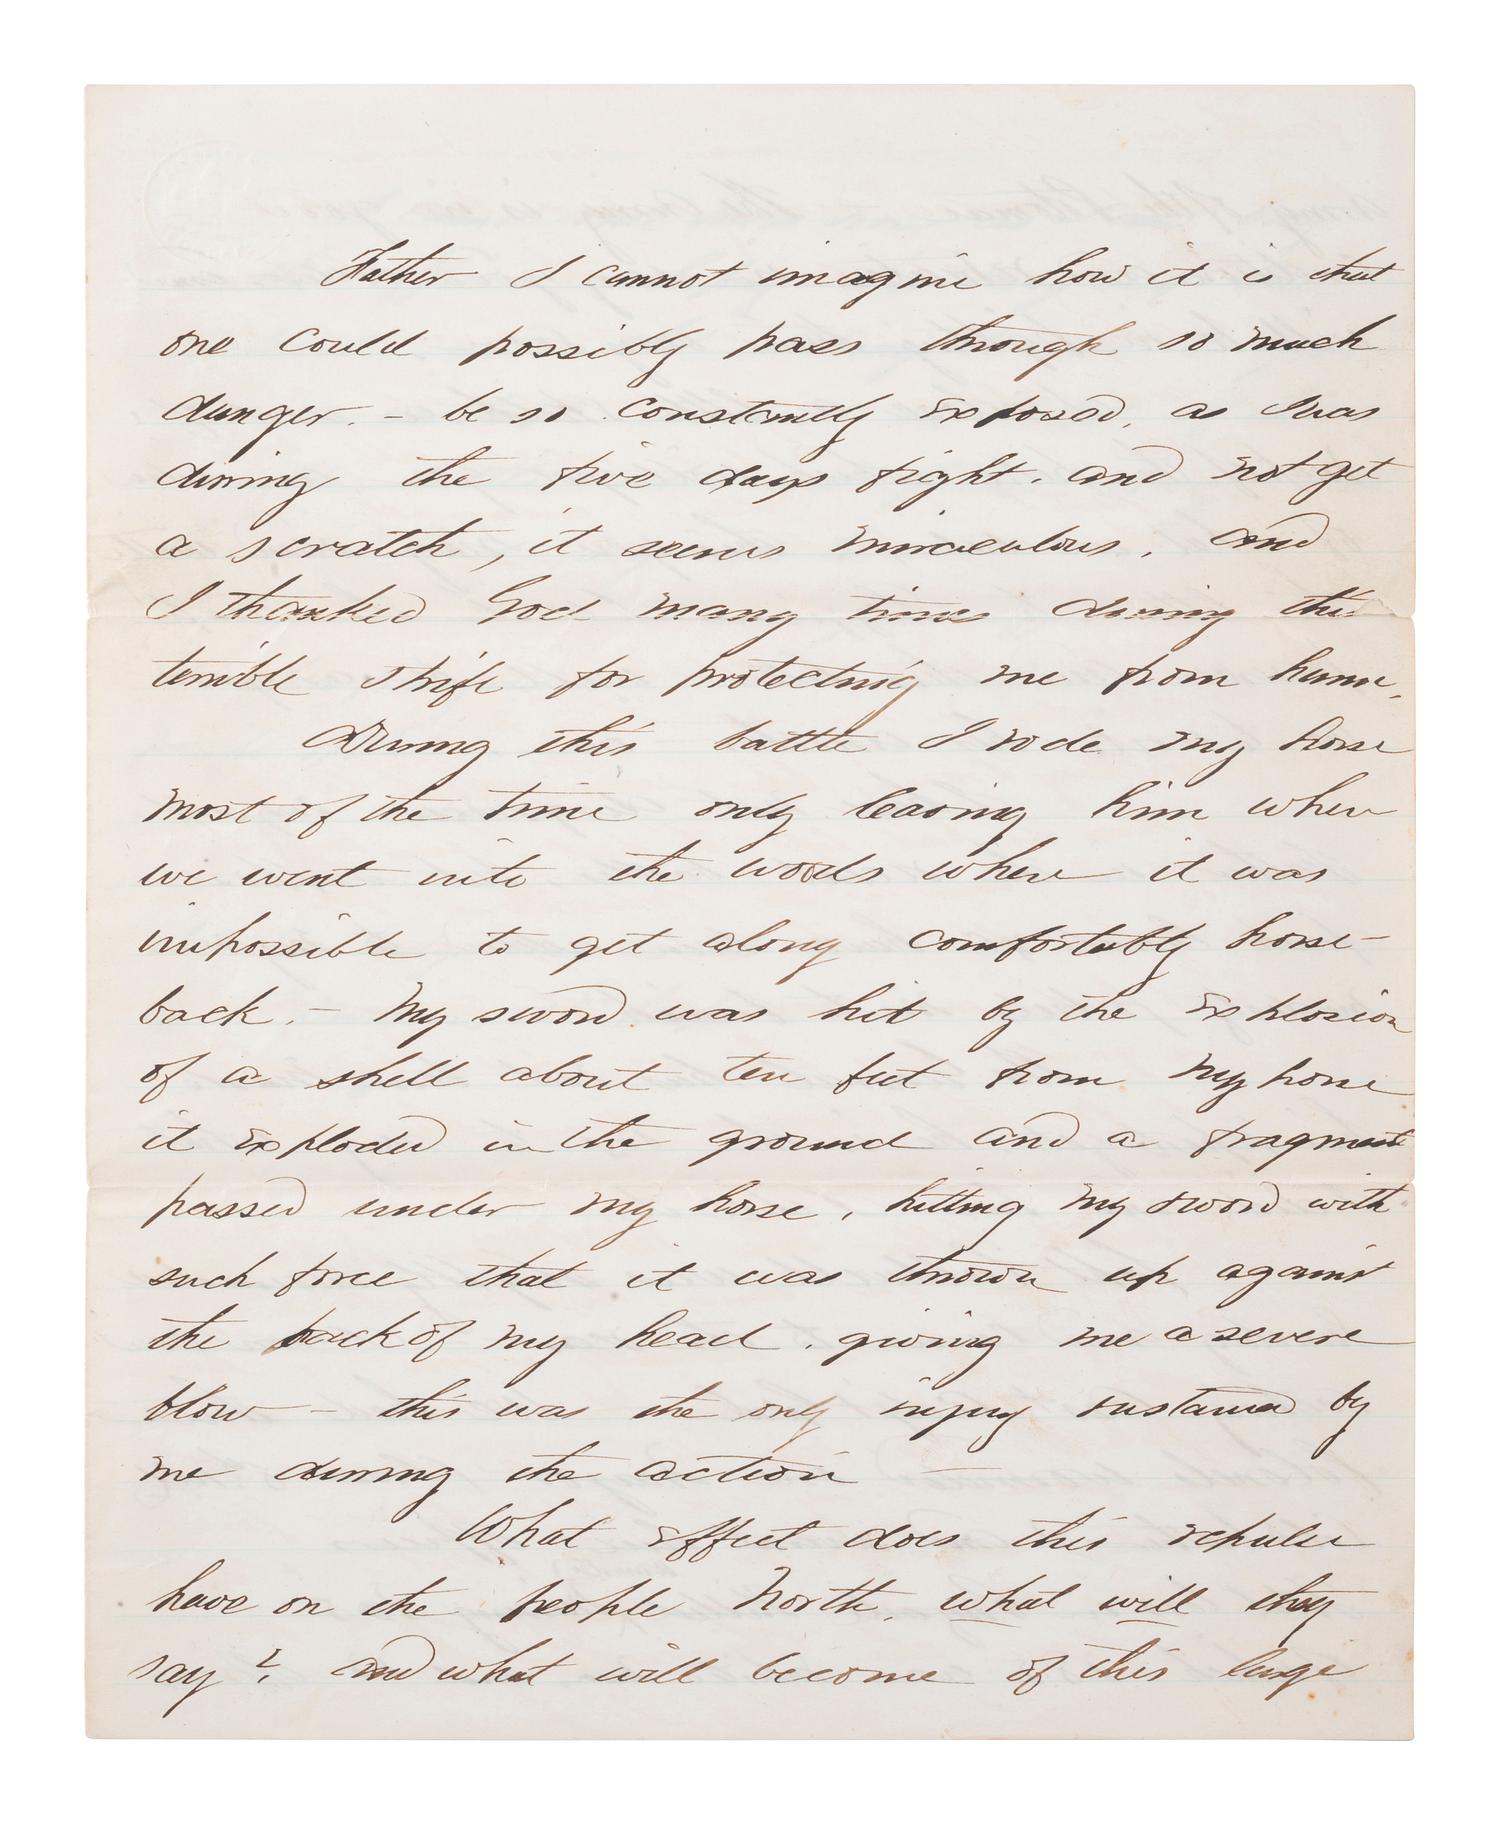 Father I cannot imagine how it is that
one could possibly pass through so much
danger. - be so constantly exposed, as I was
during the five days fight. and not get
a scratch, it seems miraculous, and
I thanked God many times during this
terrible strife for protecting me from harm.
During this battle I rode my horse
most of the time only leaving him when
we went into the woods where it was
impossible to get along comfortably horse-
back. - My sword was hit by the explosion
of a shell about ten feet from my horse
it exploded in the ground and a fragment
passed under my horse, hitting my sword with
such force that it was thrown up against
the back of my head, giving me a severe
blow - this was the only injury sustained by
me during the action -
What effect does this repulse
have on the people North, what will they
say? and what will become of this large